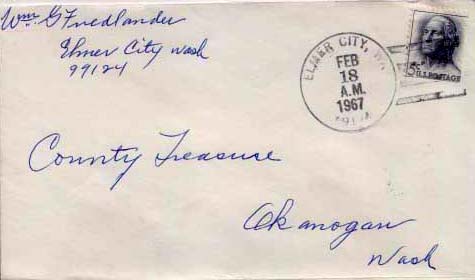 Wm. G Friedlander
Elmer City Wash
99124
ELMER CITY, WA
FEB
18
A.M.
1967
5¢ U.S. POSTAGE
County Treasure
Okanogan
Wash